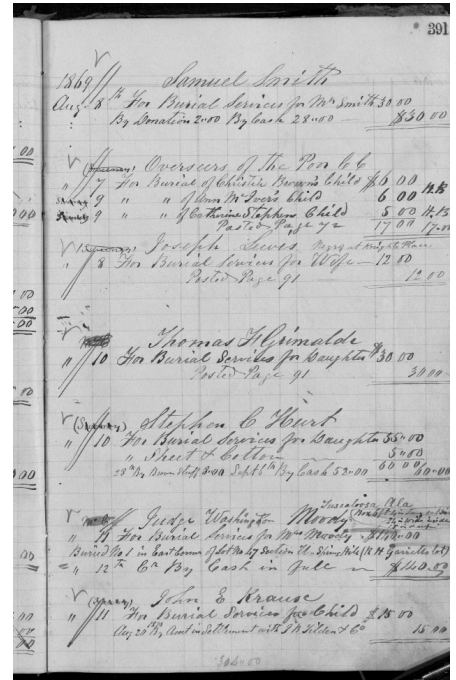 391
1869 Samuel Smith
Aug 8th For Burial Services for Mrs Smith 30.00
By Donation 2.00 By Cash 28.00 $30.00
Overseers of the Poor
" 7 For Burial of Christie Brown's Child $6 00
" 9 " " of Ann McIver's Child 6 00
" 9 " " of Catherine Stephens Child 5 00
Posted Page 72 17 00 17.00
Joseph Lewis Negro at Knights Place
" 8 For Burial Services for Wife 12 00
Posted Page 91 12 00
Thomas H Grimalde
" 10 For Burial Services for Daughter $30 00
Posted Page 91 30.00
Stephen C Hurt
" 10 For Burial Services for Daughter 55.00
" Sheet & Cotton 5.00
By 8.00 Sept 6th By Cash 52.00 60 00 60.00
Judge Washington Moody Tuscaloosa Ala
" 11 For Burial Services for Mrs Moody $140.00
Buried No 1 in East of Lot No 47 Section
" 12th Cr By Cash in full $140.00
John E Krause
" 11 For Burial Services for Child $15 00
Aug 20th By Amt in Settlement with J R Tilden & Co 15 00
304.00